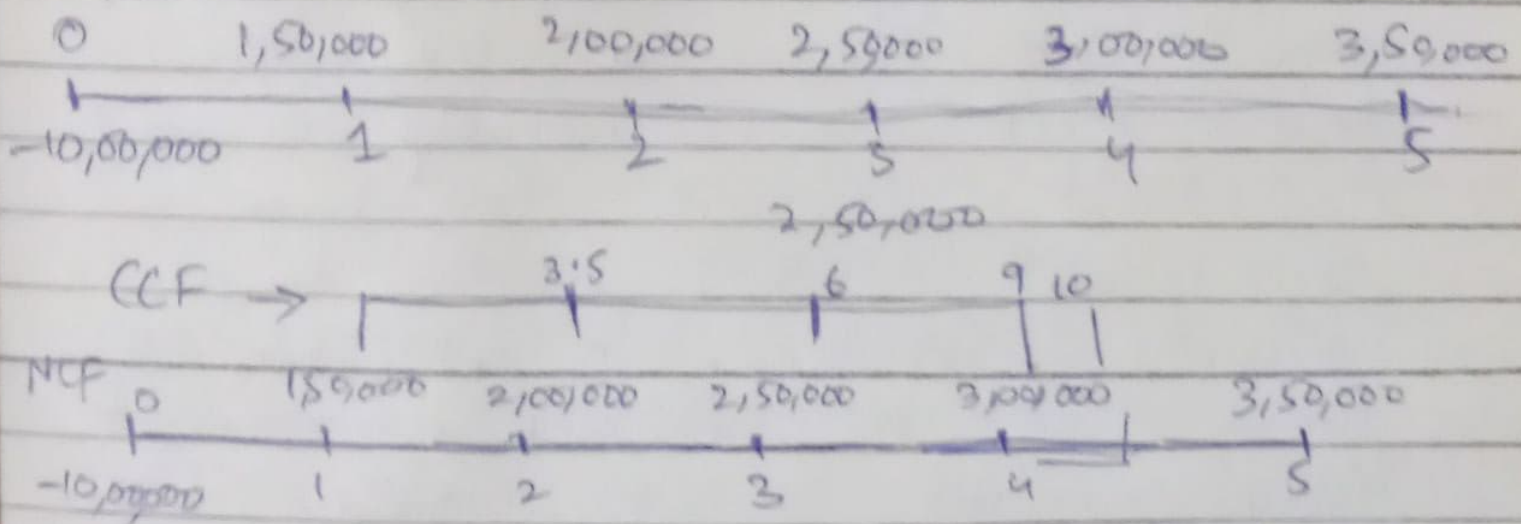 0 1,50,000 2,00,000 2,50,000 3,00,000 3,50,000
-10,00,000 1 2 3 4 5
2,50,000
CCF → 3.5 6 9 10
NCF 0 1,50,000 2,00,000 2,50,000 3,00,000 3,50,000
-10,00,000 1 2 3 4 5